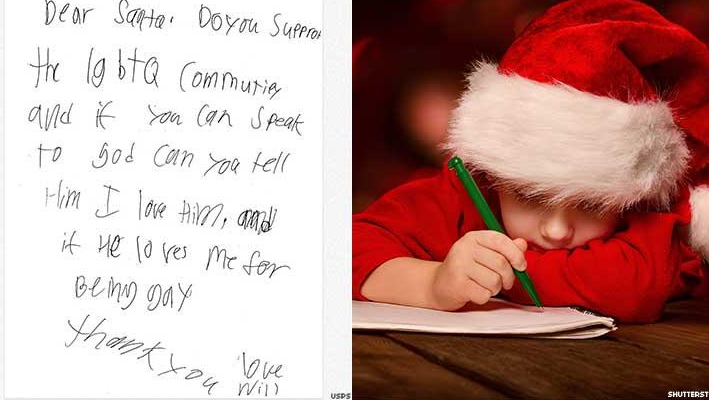 Dear Santa. Do you Support
the lgbtQ Community
and if you can speak
to god can you tell
Him I love Him, and
if He loves me for
Being gay
Thank you love
Will
USPS
SHUTTERST